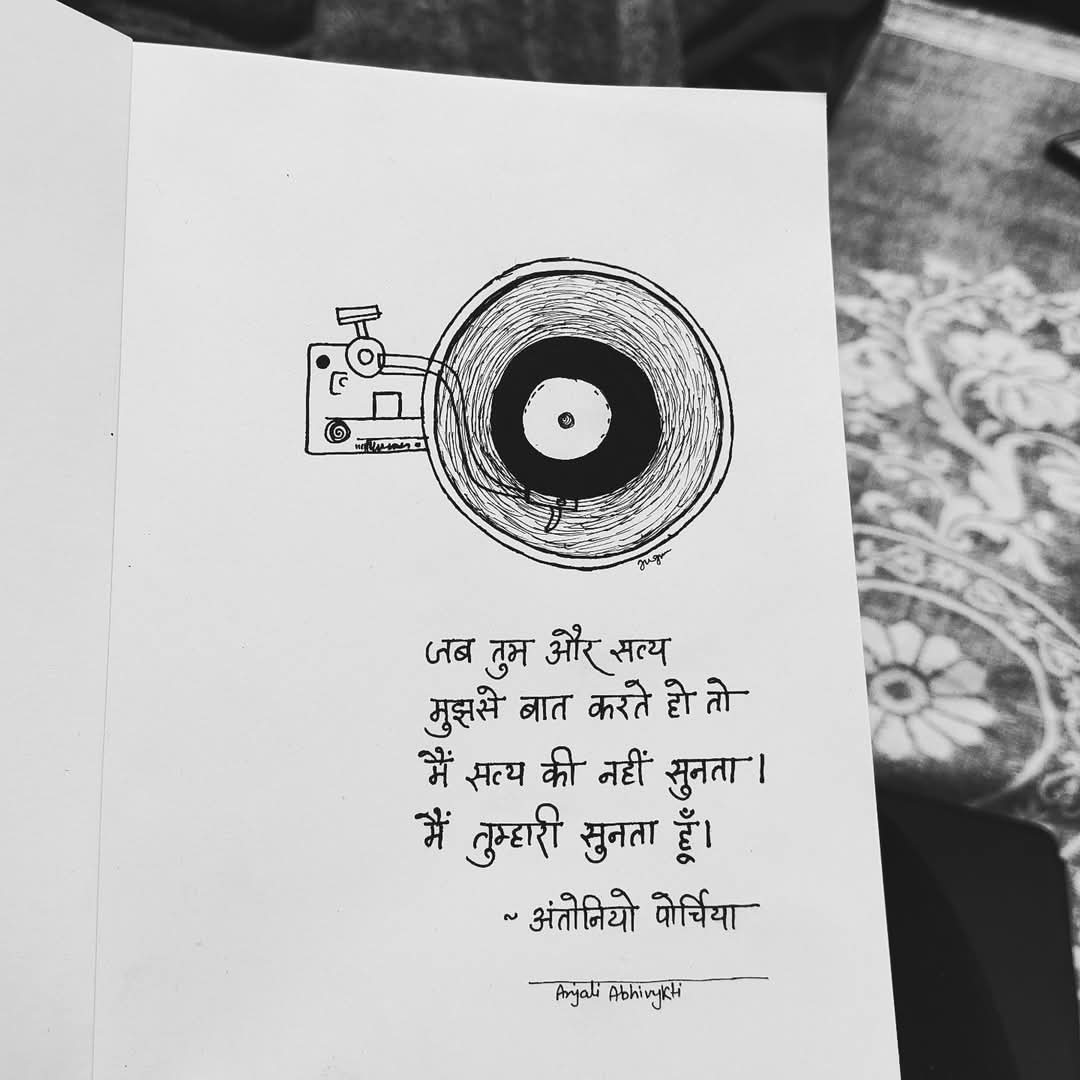 जब तुम और सत्य
मुझसे बात करते हो तो
मैं सत्य की नहीं सुनता।
मैं तुम्हारी सुनता हूँ।
~ अंतोनियो पोर्चिया
Anjali Abhivykti